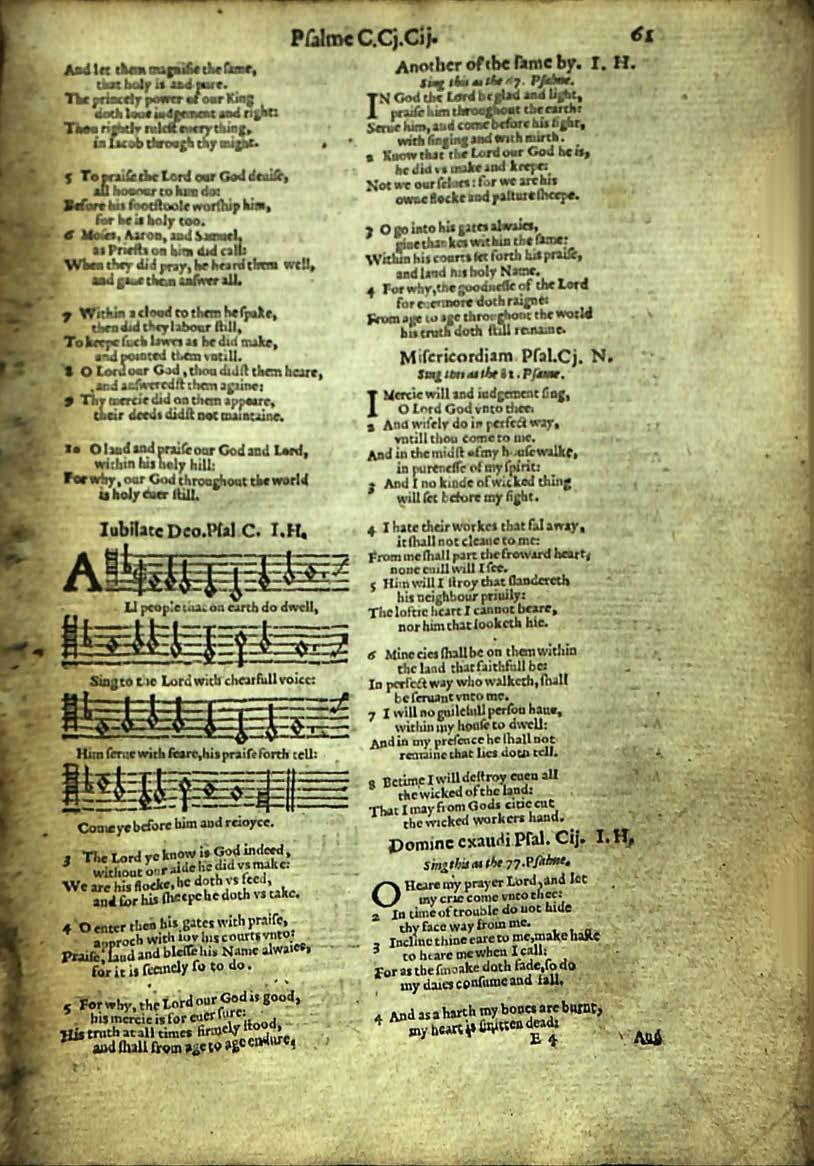 Pſalme C.Cj.Cij.
61
And let them magnifie the ſame,
that holy is and pure.
The princely power of our King
doth loue iudgement and right:
Thou rightly ruleſt euery thing,
in Iacob through thy might.
5 To praiſe the Lord our God deuiſe,
all honour to him do:
Before his footſtoole worſhip him,
for he is holy too.
6 Moſes, Aaron, and Samuel,
as Prieſts on him did call:
When they did pray, he heard them well,
and gaue them anſwer all.
7 Within a cloud to them he ſpake,
then did they labour ſtill,
To keepe ſuch lawes as he did make,
and pointed them vntill.
8 O Lord our God, thou didſt them heare,
and anſweredſt them againe:
9 Thy mercie did on them appeare,
their deeds didſt not maintaine.
10 O laud and praiſe our God and Lord,
within his holy hill:
For why, our God throughout the world
is holy euer ſtill.
Iubilate Deo.Pſal C. I.H.
A
Ll people that on earth do dwell,
Sing to the Lord with chearfull voice:
Him ſerue with feare,his praiſe forth tell:
Come ye before him and reioyce.
3 The Lord ye know is God indeed,
without our aide he did vs make:
We are his flocke, he doth vs feed,
and for his ſheepe he doth vs take.
4 O enter then his gates with praiſe,
approch with ioy his courts vnto:
Praiſe, laud and bleſſe his Name alwaies,
for it is ſeemely ſo to do.
5 For why, the Lord our God is good,
his mercie is for euer ſure:
His truth at all times firmely ſtood,
and ſhall from age to age endure.
Another of the ſame by. I. H.
Sing this as the 67. Pſalme.
IN God the Lord be glad and light,
praiſe him throughout the earth:
Serue him, and come before his ſight,
with ſinging and with mirth.
2 Know that the Lord our God he is,
he did vs make and keepe:
Not we our ſelues: for we are his
owne flocke and paſture ſheepe.
3 O go into his gates alwaies,
giue thankes within the ſame:
Within his courts ſet forth his praiſe,
and laud his holy Name.
4 For why,the goodneſſe of the Lord
for euermore doth raigne:
From age to age throughout the world
his truth doth ſtill remaine.
Miſericordiam Pſal.Cj. N.
Sing this as the 81. Pſalme.
I Mercie will and iudgement ſing,
O Lord God vnto thee:
2 And wiſely do in perfect way,
vntill thou come to me.
And in the midſt of my houſe walke,
in pureneſſe of my ſpirit:
3 And I no kinde of wicked thing
will ſet before my ſight.
4 I hate their workes that fal away,
it ſhall not cleaue to me:
From me ſhall part the froward heart,
none euill will I ſee.
5 Him will I ſtroy that ſlandereth
his neighbour priuily:
The loftie heart I cannot beare,
nor him that looketh hie.
6 Mine eies ſhall be on them within
the land that faithfull be:
In perfect way who walketh, ſhall
be ſeruant vnto me.
7 I will no guilefull perſon haue,
within my houſe to dwell:
And in my preſence he ſhall not
remaine that lies doth tell.
8 Betime I will deſtroy euen all
the wicked of the land:
That I may from Gods citie cut
the wicked workers hand.
Domine exaudi Pſal. Cij. I.H.
Sing this as the 77.Pſalme.
O Heare my prayer Lord,and let
my crie come vnto thee:
2 In time of trouble do not hide
thy face way from me.
3 Incline thine eare to me,make haſte
to heare me when I call:
For as the ſmoake doth fade,ſo do
my daies conſume and fall.
4 And as a harth my bones are burnt,
my heart is ſmitten dead:
E 4
And